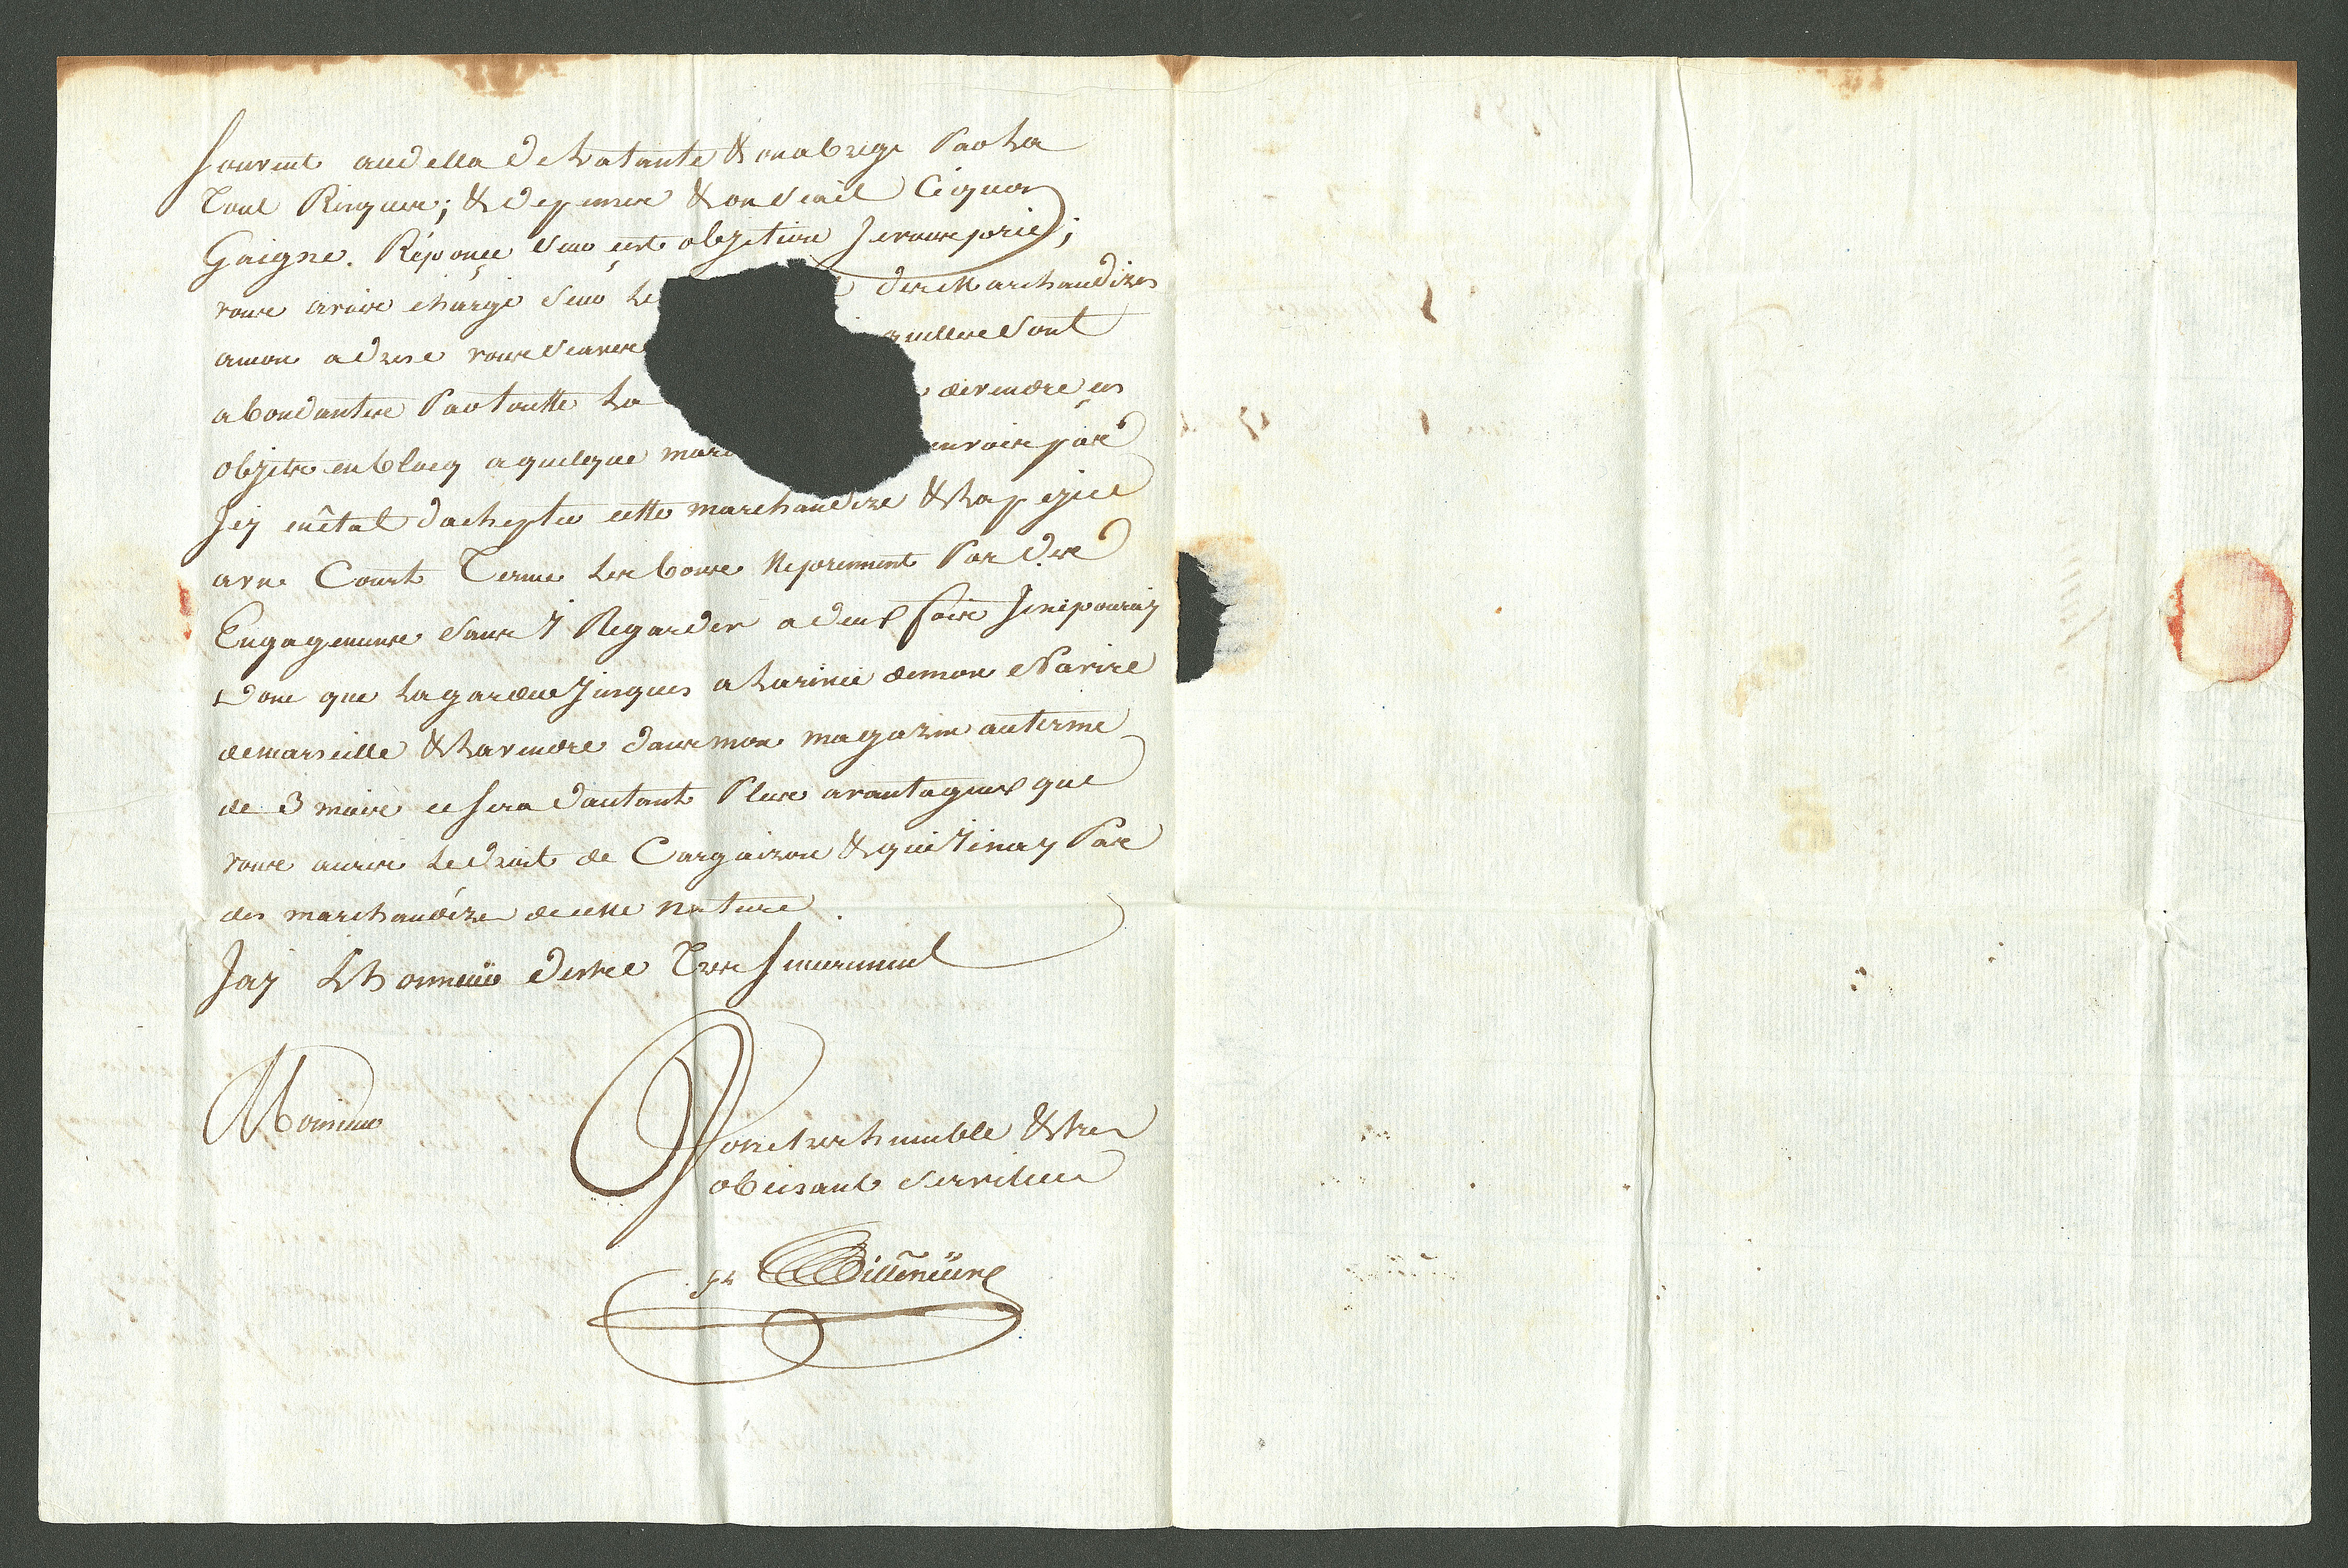 souvent audella de Latante & on abrege Par La
Tout Risquer; & depenser & on Scait Ce quon
Gaigne. Réponce Sur cest objetion Je vous prie;
vous aviés chargé Sur Le des Marchandizes
amon adresse vous Scavez quelles Sont
abondantes Par toutte La de vendre ces
objets en blocq a quelque mar envois pas
Icy en état dachepter cette marchandize & La peyer
a un Court Terme Les bons Neprennent Pas des
Engagemens Sans y Regarder a deux fois Je ne pouray
Donc que La garder Jusques a Larivée de mon Navire
de marseille & La vendre dans mon magazin au terme
de 3 mois ce sera dautant Plus avantageux que
vous aurés Le droit de Cargaizon & quil ny a Pas
des marchandizes de cette Nature.
Jay Lhonneur destre Tres sincerement
Monsieur
Votre tres humble & tres
obeisant Serviteur
Villeneuve